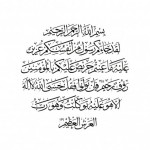 بسم الله الرحمن الرحيم
لقد جاءكم رسول من أنفسكم عزيز
عليه ما عنتم حريص عليكم بالمؤمنين
رءوف رحيم فإن تولوا فقل حسبي الله لا إله
إلا هو عليه توكلت وهو رب
العرش العظيم